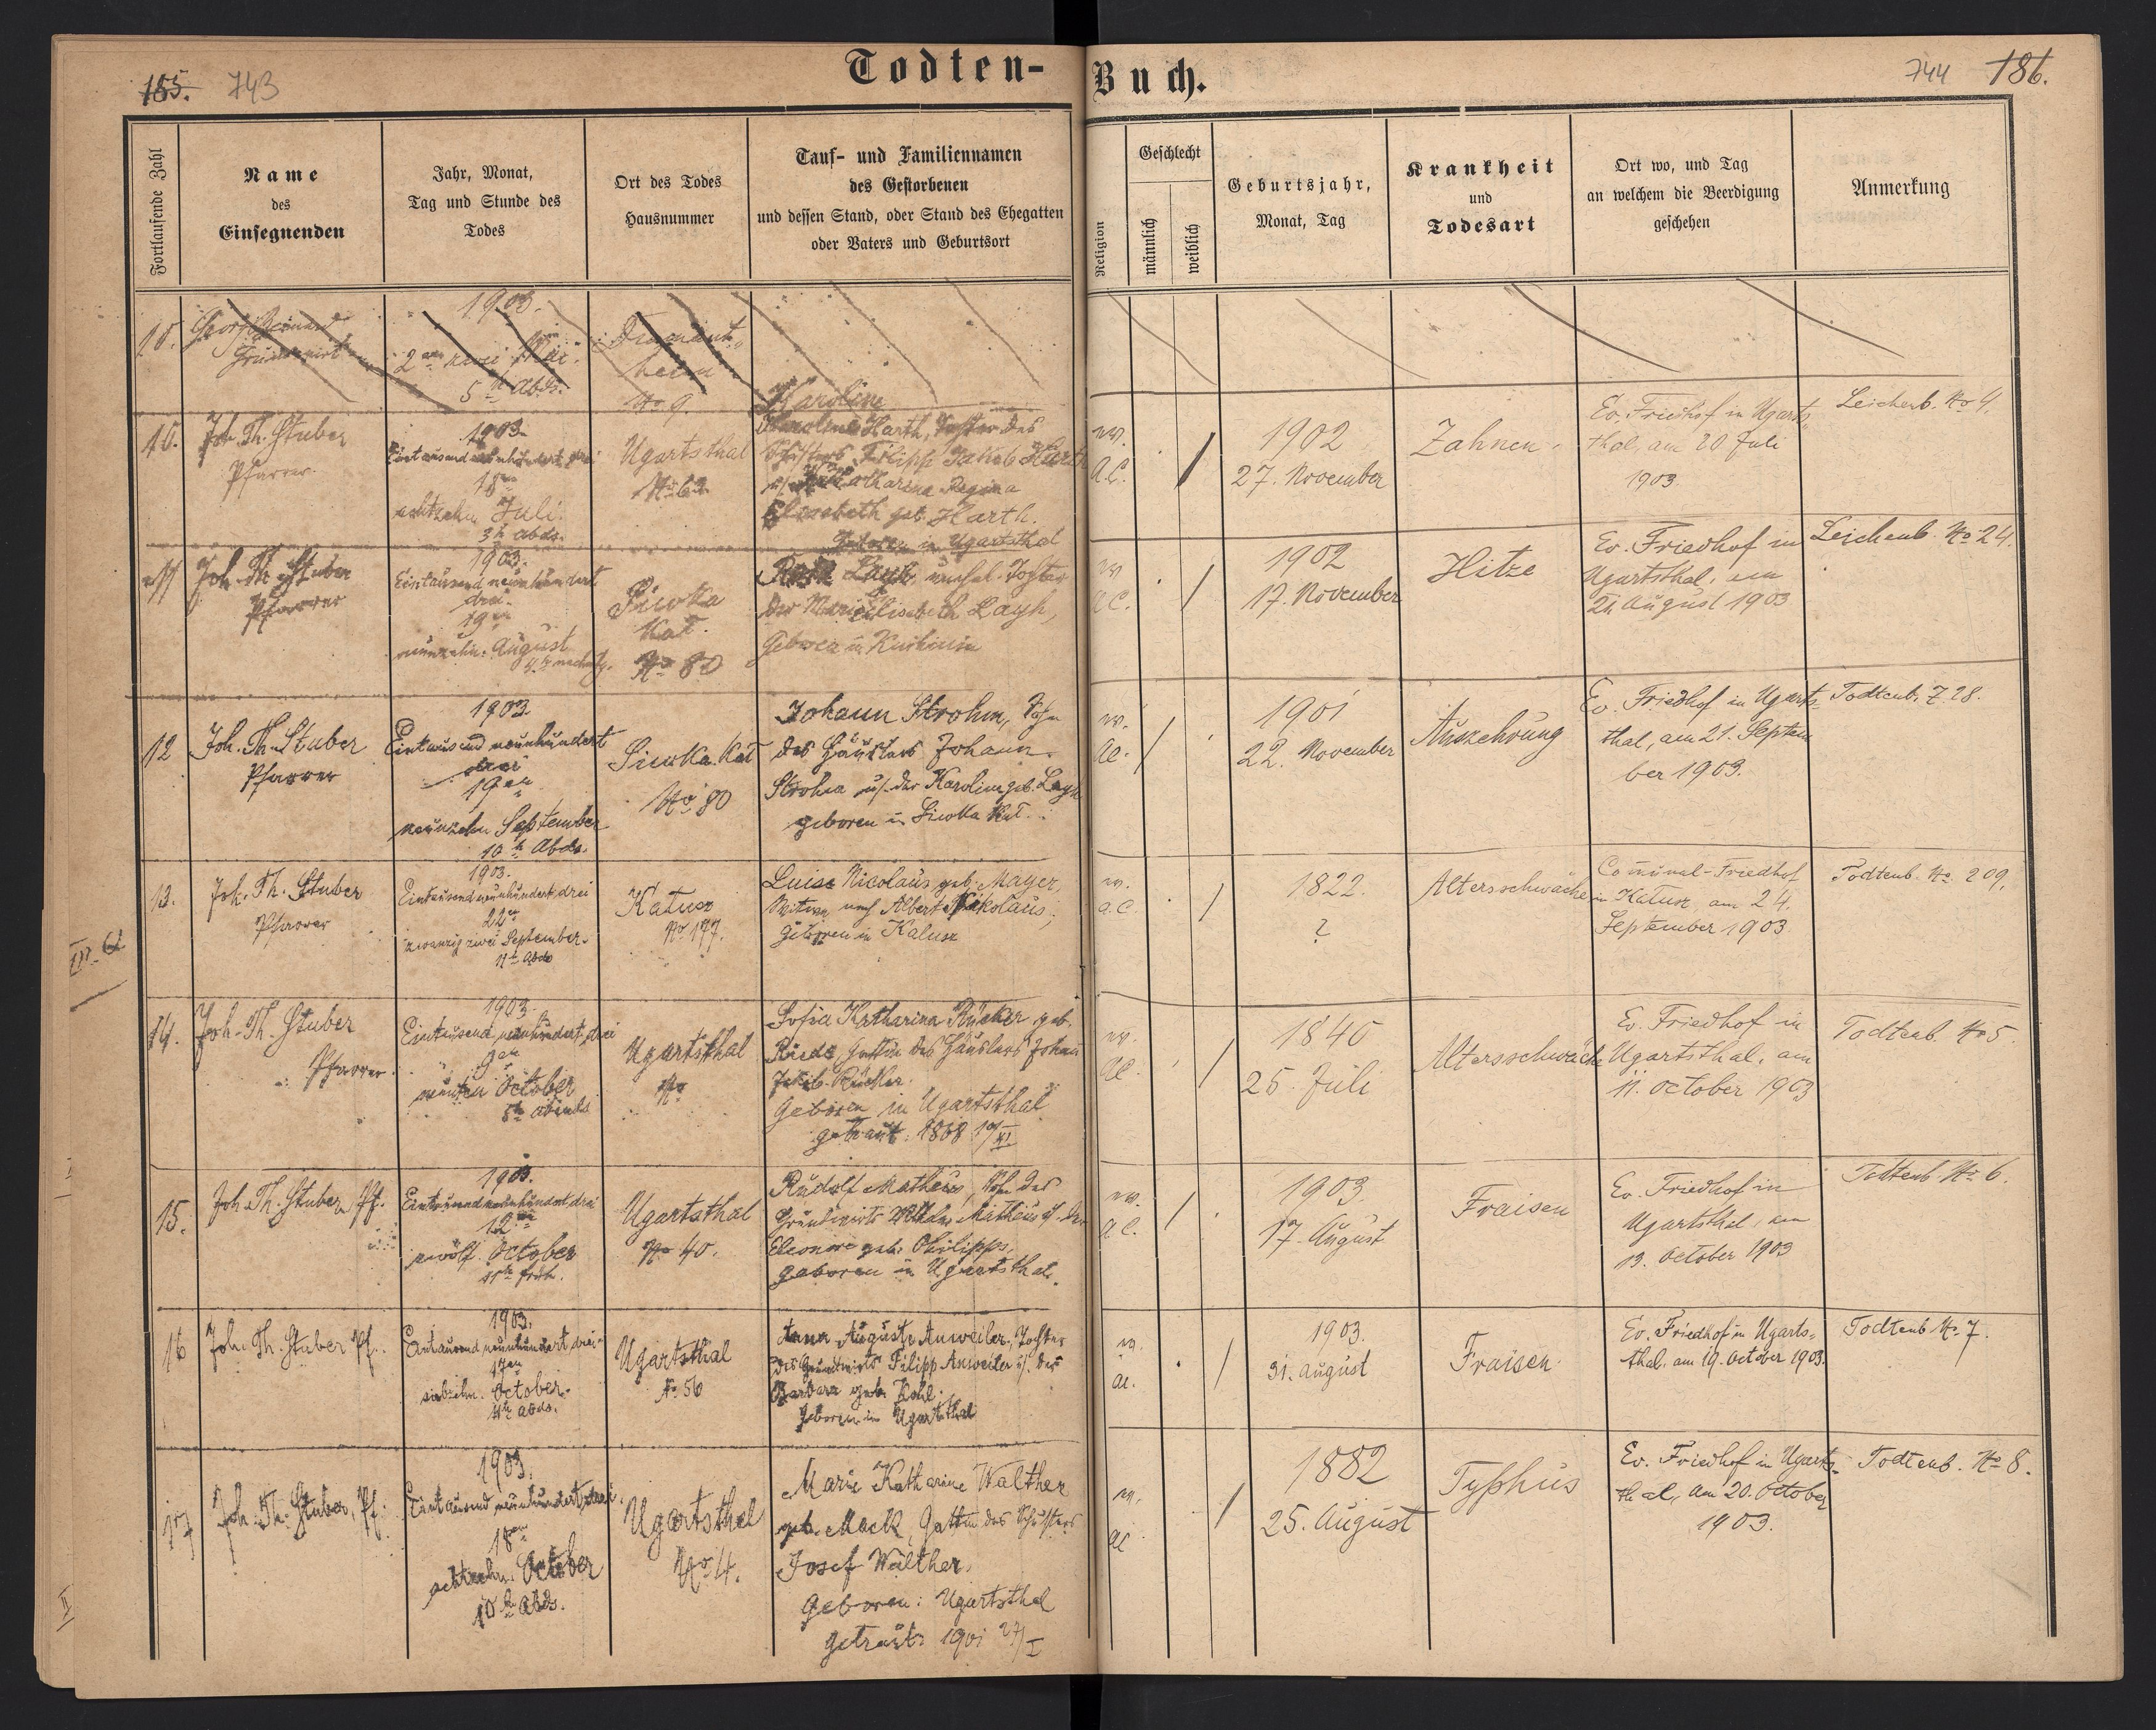 185. 743
Todten-
Buch.
744 186.
Fortlaufende Zahl
Name
des
Einsegnenden
Jahr, Monat,
Tag und Stunde des
Todes
Ort des Todes
Hausnummer
Tauf- und Familiennamen
des Gestorbenen
und dessen Stand, oder Stand des Ehegatten
oder Vaters und Geburtsort
Religion
Geschlecht
männlich
weiblich
Geburtsjahr,
Monat, Tag
Krankheit
und
Todesart
Ort wo, und Tag
an welchem die Beerdigung
geschehen
Anmerkung
10.
1903.
2 zwei Mai
5 h Abds.
No 9.
10.
Joh. Th. Stuber
Pfarrer
1903
Eintausend neunhundert drei
18ten
achtzehn Juli
3 h abds.
Ugartsthal
No 62
Karoline
Karoline Harth, Tochter des
Filipp Jakob Harth
u/ Katharina Regina
Elisabeth geb. Harth.
Geboren in Ugartsthal
ev.
a.C.
/
1902
27. November
Zahnen.
Ev. Friedhof in Ugarts-
thal, am 20 Juli
1903
Leichenb. No 4.
11
Joh. Th. Stuber
Pfarrer
1903.
Eintausend neunhundert
drei.
19ten
neunzehn. August
Siwka
Kał.
No 80
Layh, unehel. Tochter
der Marie Elisabeth Layh,
Geboren in
ev
a C.
/
1902
17. November
Hitze
Ev. Friedhof in
Ugartsthal, am
21. August 1903
Leichenb. No 24.
12
Joh. Th. Stuber
Pfarrer
1903.
Eintausend neunhundert
drei
19ten
neunzehn September
10 h Abds.
Siwka. Kał
No 80
Johann Strohm, Sohn
des Häuslers Johann
Strohm u/. der Karoline geb. Layh
geboren in Siwka Kał.
ev.
ac.
/
1901
22. November
Auszehrung
Ev. Friedhof in Ugarts-
thal, am 21. Septem
ber 1903.
Todtenb. Z 28.
13.
Joh. Th. Stuber
Pfarrer
1903.
Eintausend neunhundert drei
22ten
zwanzig zwei September.
11 h Abds
Kałusz
No 177.
Luise Nicolaus, geb. Mayer,
Witwe nach Albert Nikolaus,
geboren in Kalusz
ev.
a.C.
/
1822.
?
Altersschwäche
Comunal-Friedhof
in Kałusz, am 24.
September 1903
Todtenb. No 209.
14.
Joh. Th. Stuber
Pfarrer.
1903.
Eintausend neunhundert drei
9ten
neunten October
5 h abends
Ugartsthal
No
Sofia Katharina Rücker, geb.
Gattin des Häuslers Johann
Jakob Rücker.
Geboren in Ugartsthal
getraut: 1868 10/XI
ev.
ac.
/
1840
25. Juli
Altersschwäche
Ev. Friedhof in
Ugartsthal, am
11. October 1903
Todtenb. No 5
15.
Joh. Th. Stuber, Pf.
1903.
Eintausend neunhundert drei
12ten
zwölf. October
11 h früh.
Ugartsthal
No 40.
Rudolf Matheus, Sohn des
Grundwirts Wilhelm Matheus u/. der
Eleonore geb. Philipps,
geboren in Ugartsthal.
ev.
a C.
/
1903.
17. August
Fraisen
Ev. Friedhof in
Ugartsthal, am
13. October 1903
Todtenb No 6.
16
Joh. Th. Stuber Pf.
1903.
Eintausend neunhundert drei
17ten
siebzehn. October.
11 h abds.
Ugartsthal
No 56
Anna Auguste Anweiler, Tochter
des Grundwirts Filipp Anweiler u/. der
Barbara geb. Kohl.
Geboren in Ugartsthal
ev.
ac.
/
1903.
31. August
Fraisen.
Ev. Friedhof in Ugarts-
thal. am 19. October 1903.
Todtenb No. 7.
17
Joh. Th. Stuber, Pf.
1903.
Eintausend neunhundert drei.
18ten
achtzehn. October
10 h Abds.
Ugartsthal
No 4.
Marie Katharine Walther
geb. Mack, Gattin des Schusters
Josef Walther.
Geboren: Ugartsthal
getraut: 1901 27/I
ev.
ac
/
1882
25. August
Typhus
Ev. Friedhof in Ugarts-
thal, am 20. October
1903.
Todtenb. No 8.